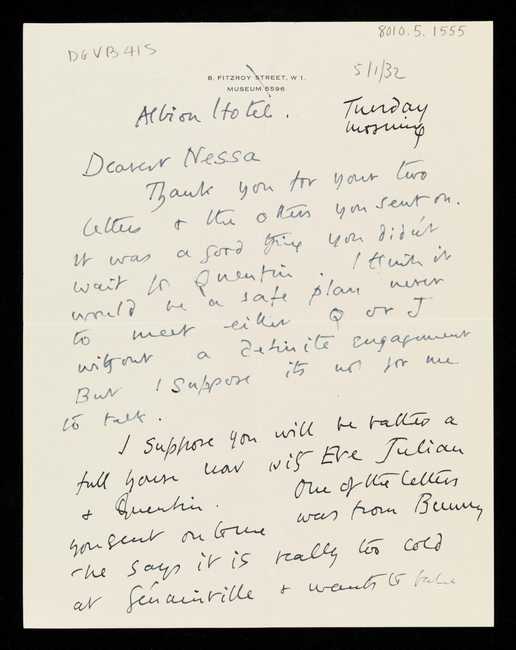 DGVB415
8010.5.1555
8. FITZROY STREET, W 1.
MUSEUM 5596
5/1/32
Albion Hotel.
Tuesday
morning
Dearest Nessa
Thank you for your two
letters & the others you sent on.
It was a good thing you didn't
wait for Quentin. I think it
would be a safe plan never
to meet either Q or J
without a definite engagement
But I suppose its not for me
to talk.
I suppose you will be rather a
full house now with Eve Julian
& Quentin. One of the letters
you sent on to me was from Bunny
he says it is really too cold
at Génainville & wants to take